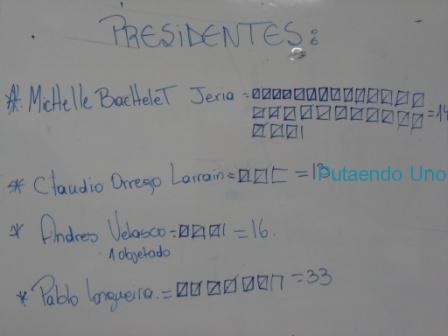 PRESIDENTES:
* Michelle Bachelet Jeria =
* Claudio Orrego Larrain = = 13
Putaendo Uno
* Andres Velasco = = 16.
1 objetado
* Pablo Longueira. = = 33